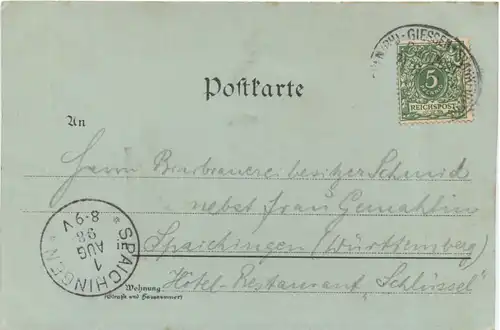 GIESSEN
5
REICHSPOST
Postkarte
An
Herrn Bierbrauerei besitzer Schmid
nebst Frau Gemahlin
Spaichingen (Württemberg)
Hotel-Restaurant „Schlüssel"
Wohnung
(Straße und Hausnummer)
* SPAICHINGEN *
1
AUG
98
8-9 V